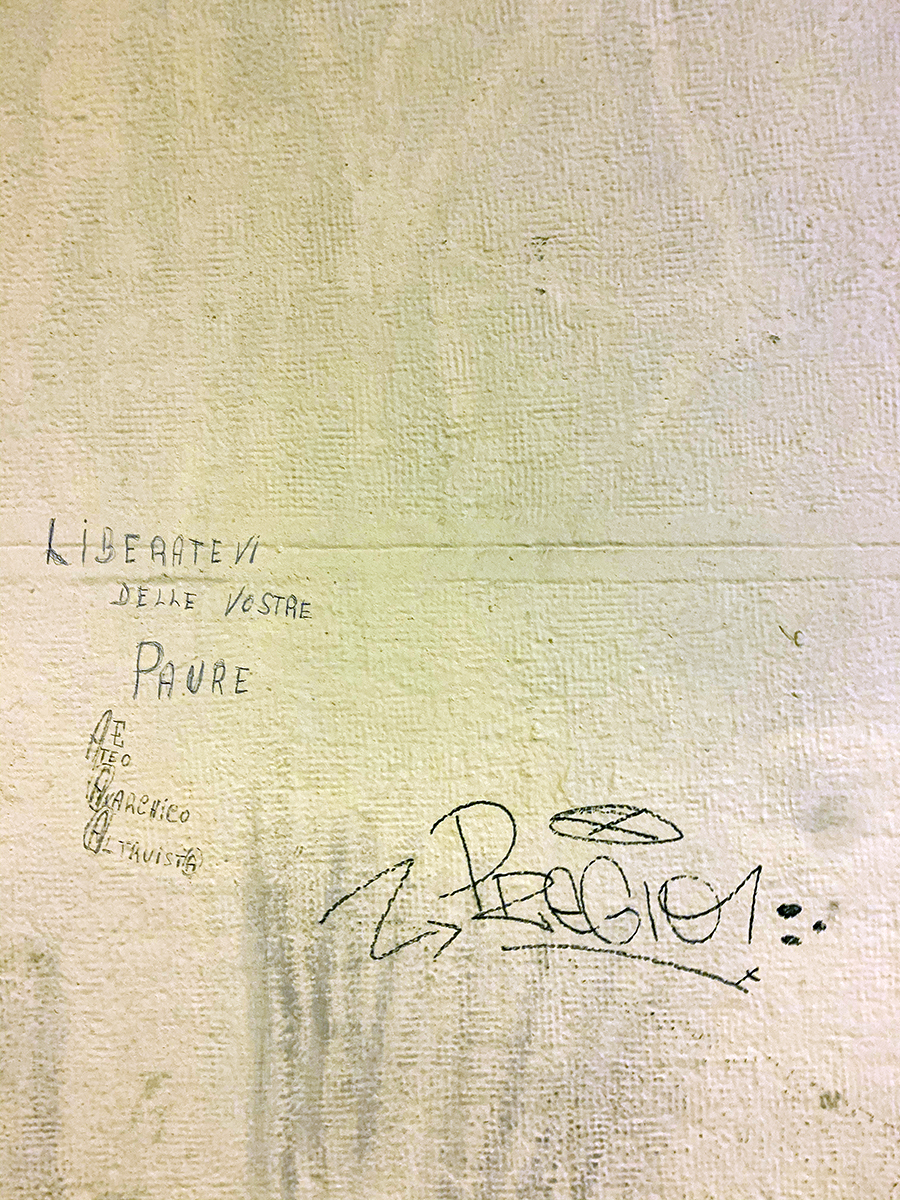 LIBERATEVI
DELLE VOSTRE
PAURE
AE
ATEO
ANARCHICO
ALTRUISTA